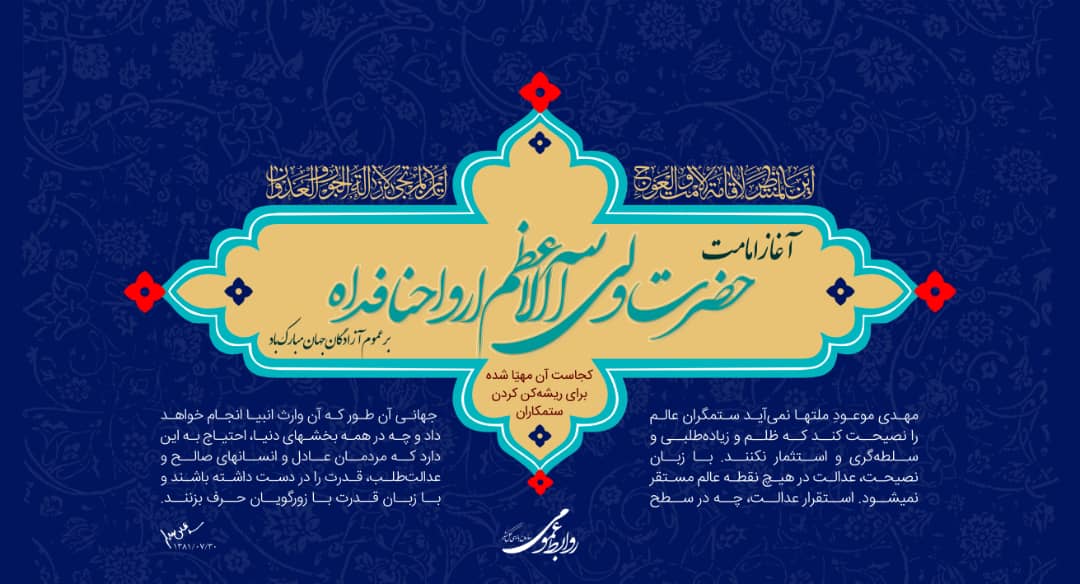 أین المنتظر لاقامة الامت و العوج
أین المرتجی لازالة الجور و العدوان
آغاز امامت
حضرت ولی الله الاعظم ارواحنا فداه
بر عموم آزادگان جهان مبارک باد
کجاست آن مهیّا شده
برای ریشه‌کن کردن
ستمکاران
مهدی موعودِ ملتها نمی‌آید ستمگران عالم
را نصیحت کند که ظلم و زیاده‌طلبی و
سلطه‌گری و استثمار نکنند. با زبان
نصیحت، عدالت در هیچ نقطه عالم مستقر
نمیشود. استقرار عدالت، چه در سطح
جهانی آن طور که آن وارث انبیا انجام خواهد
داد و چه در همه بخشهای دنیا، احتیاج به این
دارد که مردمان عادل و انسانهای صالح و
عدالت‌طلب، قدرت را در دست داشته باشند و
با زبان قدرت با زورگویان حرف بزنند.
۱۳۸۱/۰۷/۳۰
روابط عمومی